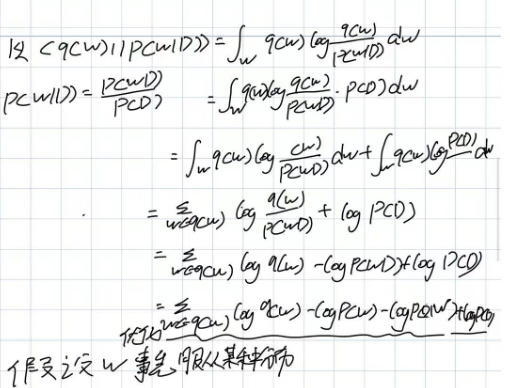 KL(q(w)||p(w|D)) = ∫_w q(w) log q(w)/p(w|D) dw
p(w|D) = p(wD)/p(D) = ∫_w q(w) log q(w)/p(wD) · p(D) dw
= ∫_w q(w) log (w)/p(wD) dw + ∫_w q(w) log p(D) dw
= Σ_{w∈q(w)} log q(w)/p(wD) + log p(D)
= Σ_{w∈q(w)} log q(w) - log p(wD) + log p(D)
= Σ_{w∈q(w)} log q(w) - log p(w) - log p(D|w) + log p(D)
假设 w 事先服从某种分布